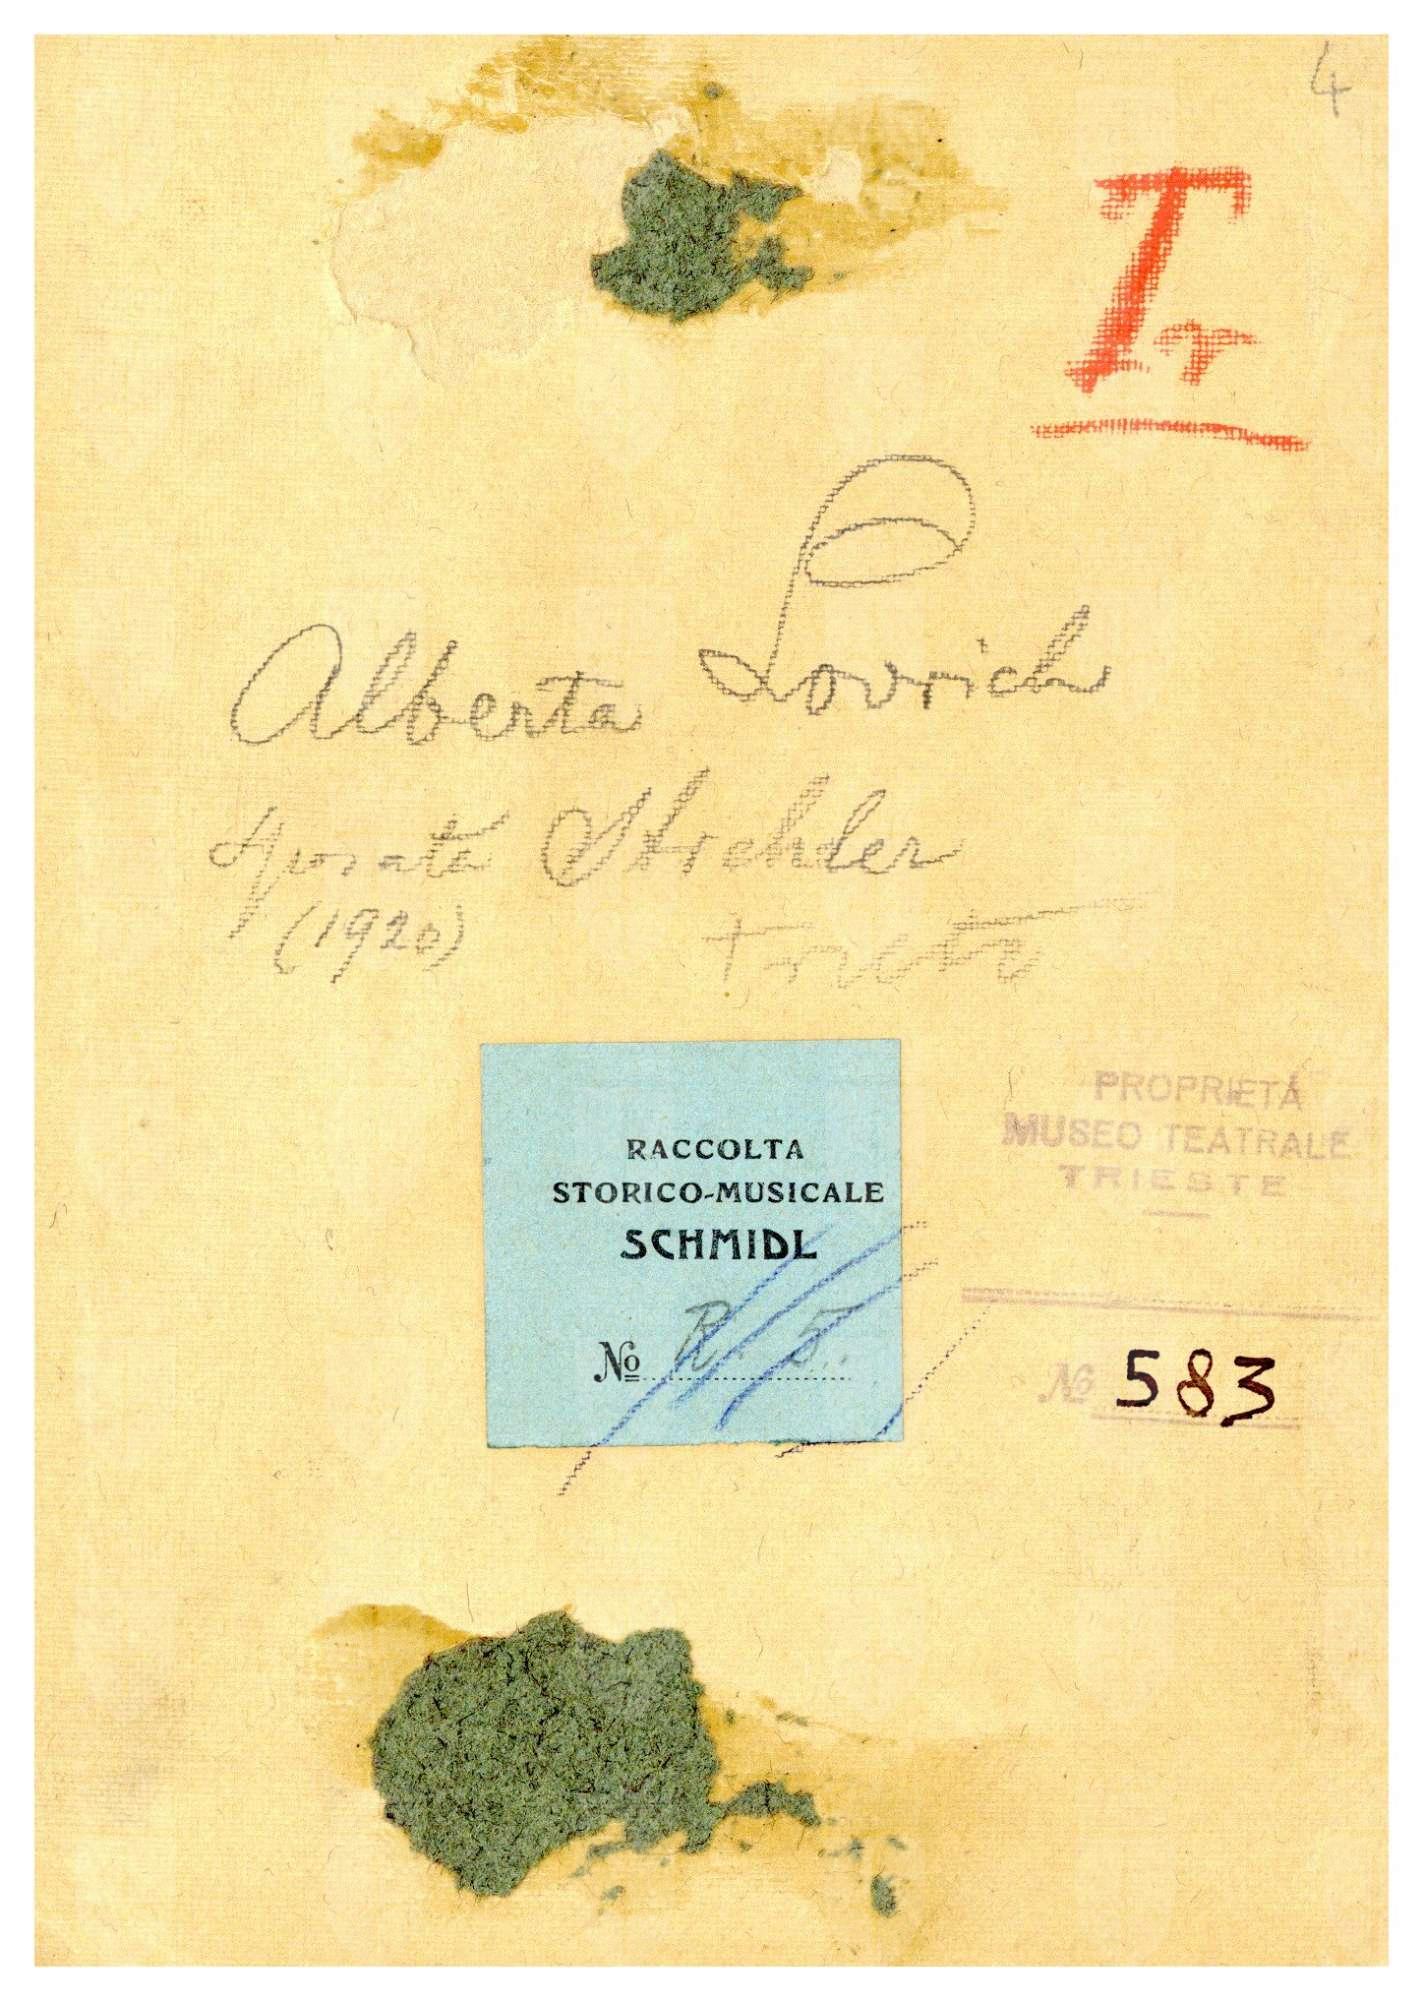 4
Tr
Alberta Lovrich
sposata
(1920)
Trieste
RACCOLTA
STORICO-MUSICALE
SCHMIDL
No R. 5.
PROPRIETÀ
MUSEO TEATRALE
TRIESTE
No 583